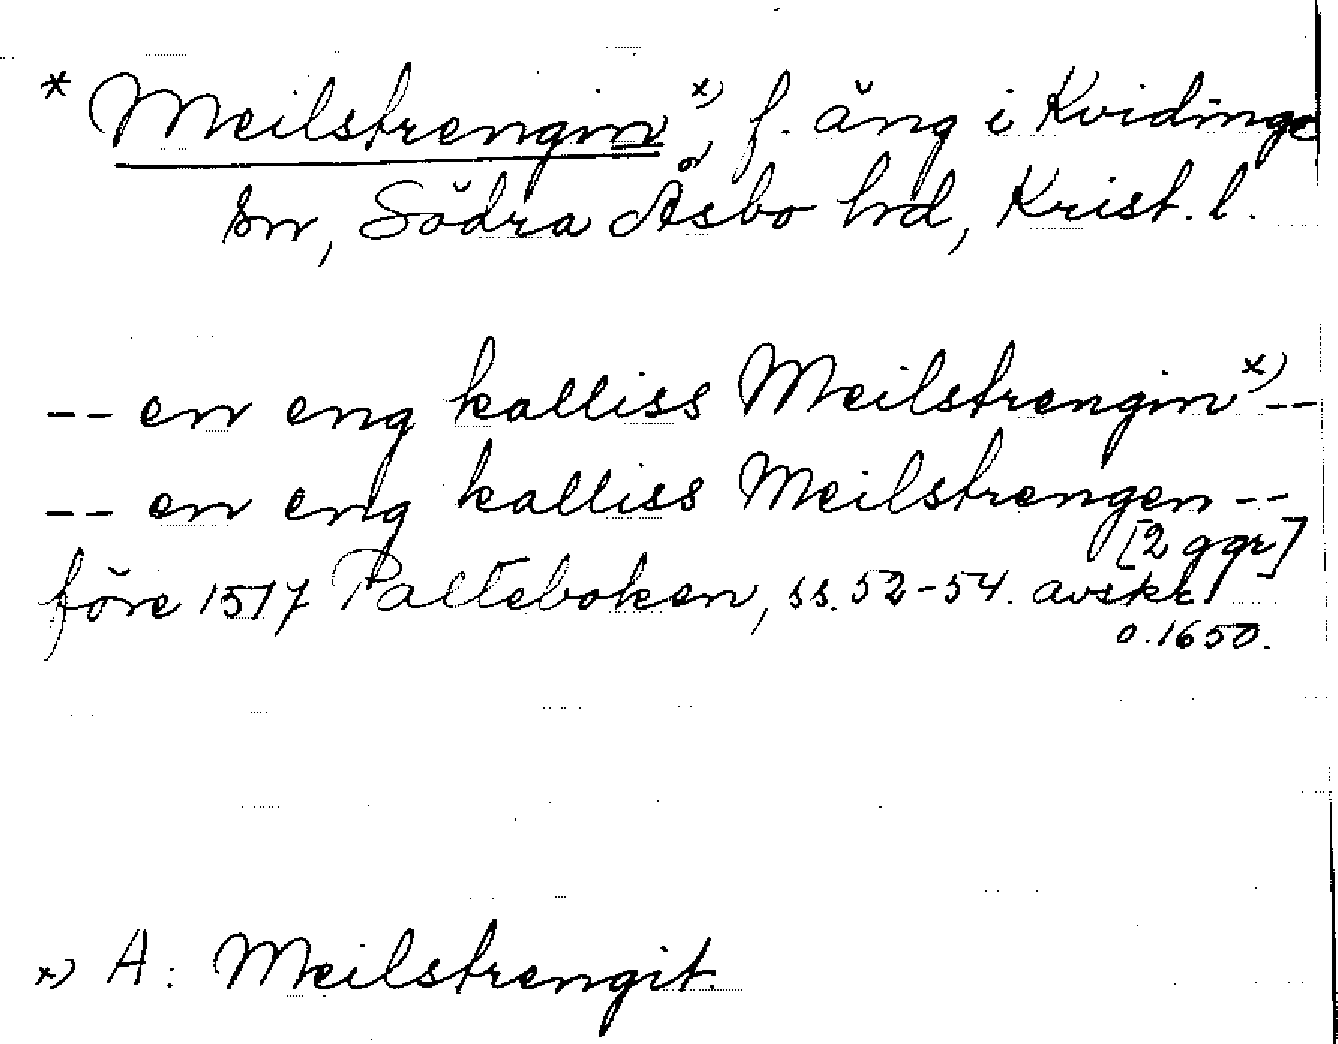 * Meilstrengin x), f. äng i Kvidinge
sn, Södra Åsbo hrd, Krist. l.
-- en eng kalliss Meilstrengin x) --
-- en eng kalliss Meilstrengen --
[2 ggr]
före 1517 Palteboken, ss. 52-54. avskr.
o. 1650.
x) A: Meilstrengit.